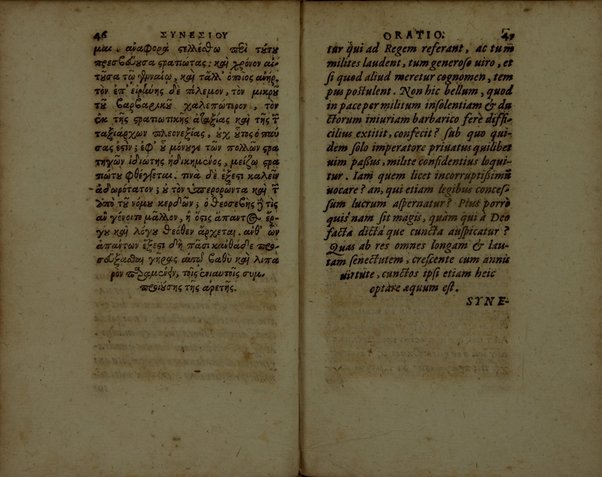 46 ΣΥΝΕΣΙΟΥ
μαι ἀναφορὰ στελλέσθω περὶ τούτου
πρεσβεύουσα στρατιώτας· καὶ χρόνον αἰ-
τοῦσα τῷ γενναίῳ, καὶ τἄλλ' ὁποῖος ἀνὴρ.
τὸν ἐπ' εἰρήνης δὲ πόλεμον, τὸν μικροῦ
τοῦ βαρβαρικοῦ χαλεπώτερον, τὸν
ἐκ τῆς στρατιωτικῆς ἀταξίας καὶ τῆς τῶν
ταξιάρχων πλεονεξίας, οὐχ οὗτος ὁ παύ-
σας ἐστίν; ἐφ' οὗ μόνου γε τῶν πολλῶν στρα-
τηγῶν ἰδιώτης ἠδικημένος, μεῖζον στρα-
τιώτου φθέγγεται. τίνα δὲ ἔξεστι καλεῖν
ἀδωρότατον; οὐ τὸν ὑπερορῶντα καὶ τῶν
ὑπὸ τοῦ νόμου κερδῶν; ὁ θεοσεβὴς τίς
αὖ γένοιτο μᾶλλον, ἢ ὅστις ἅπαντος ἔρ-
γου καὶ λόγου θεόθεν ἄρχεται. ἀνθ' ὧν
ἁπάντων ἔξεστι δὴ πᾶσι καὶ ἐνθάδε προσ-
εύξασθαι γῆρας αὐτῷ βαθὺ καὶ λιπα-
ρὸν
τοῖς ἐνιαυτοῖς συμ-
προϊούσης τῆς ἀρετῆς.
ORATIO. 47
tur qui ad Regem referant, ac tum
milites laudent, tum generoso uiro, et
si quod aliud meretur cognomen, tem
pus postulent. Non hic bellum, quod
in pace per militum insolentiam & du
ctorum iniuriam barbarico ferè diffi
cilius extitit, confecit? sub quo qui-
dem solo imperatore priuatus quilibet
uim passus, milite confidentius loqui
tur. Iam quem licet incorruptissimũ
uocare? an, qui etiam legibus conces
sum lucrum aspernatur? Pius porrò
quis nam sit magis, quàm qui à Deo
facta dictáque cuncta auspicatur?
Quas ab res omnes longam & lau-
tam senectutem, crescente cum annis
uirtute, cunctos ipsi etiam heic
optare aequum est.
SYNE-